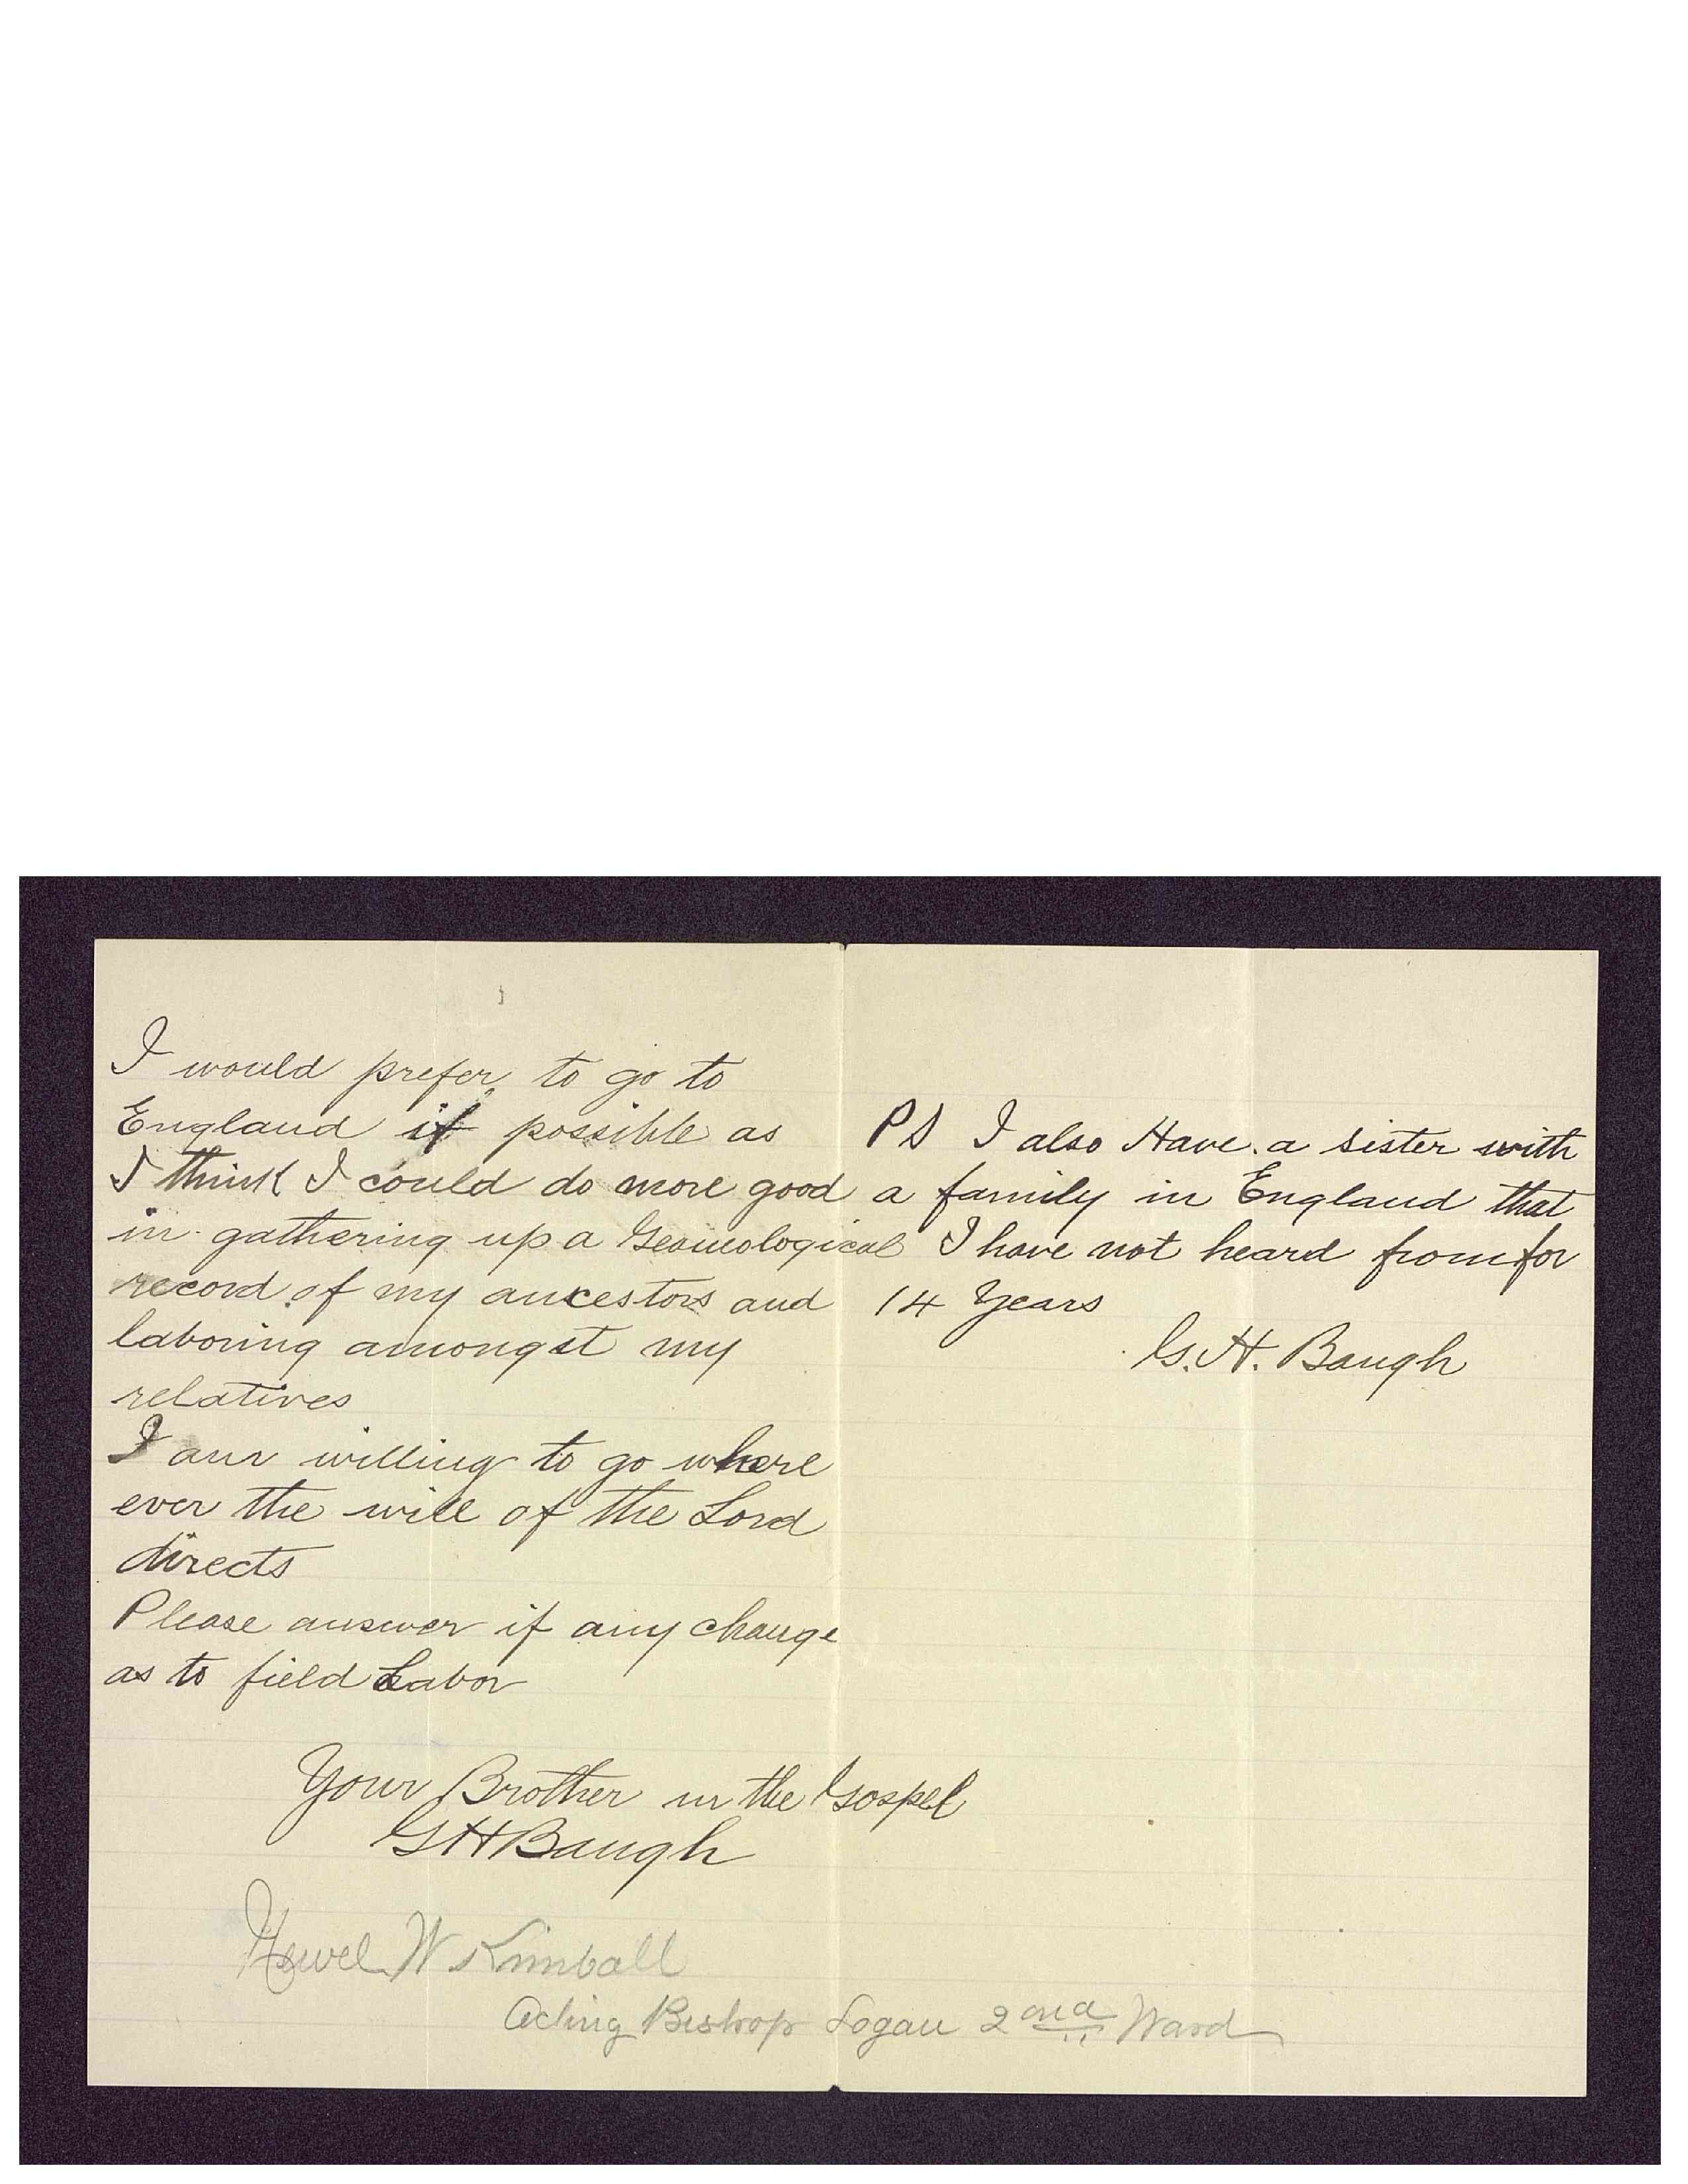 I would prefer to go to
England if possible as
I think I could do more good
in gathering up a Geaneological
record of my ancestors and
laboring amongst my
relatives
I am willing to go where
ever the will of the Lord
directs
Please answer if any change
as to field Labor
Your Brother in the Gospel
GHBaugh
Newel W Kimball
Acting Bishop Logan 2ond Ward
PS I also Have a sister with
a family in England that
I have not heard from for
14 Years
G. H. Baugh